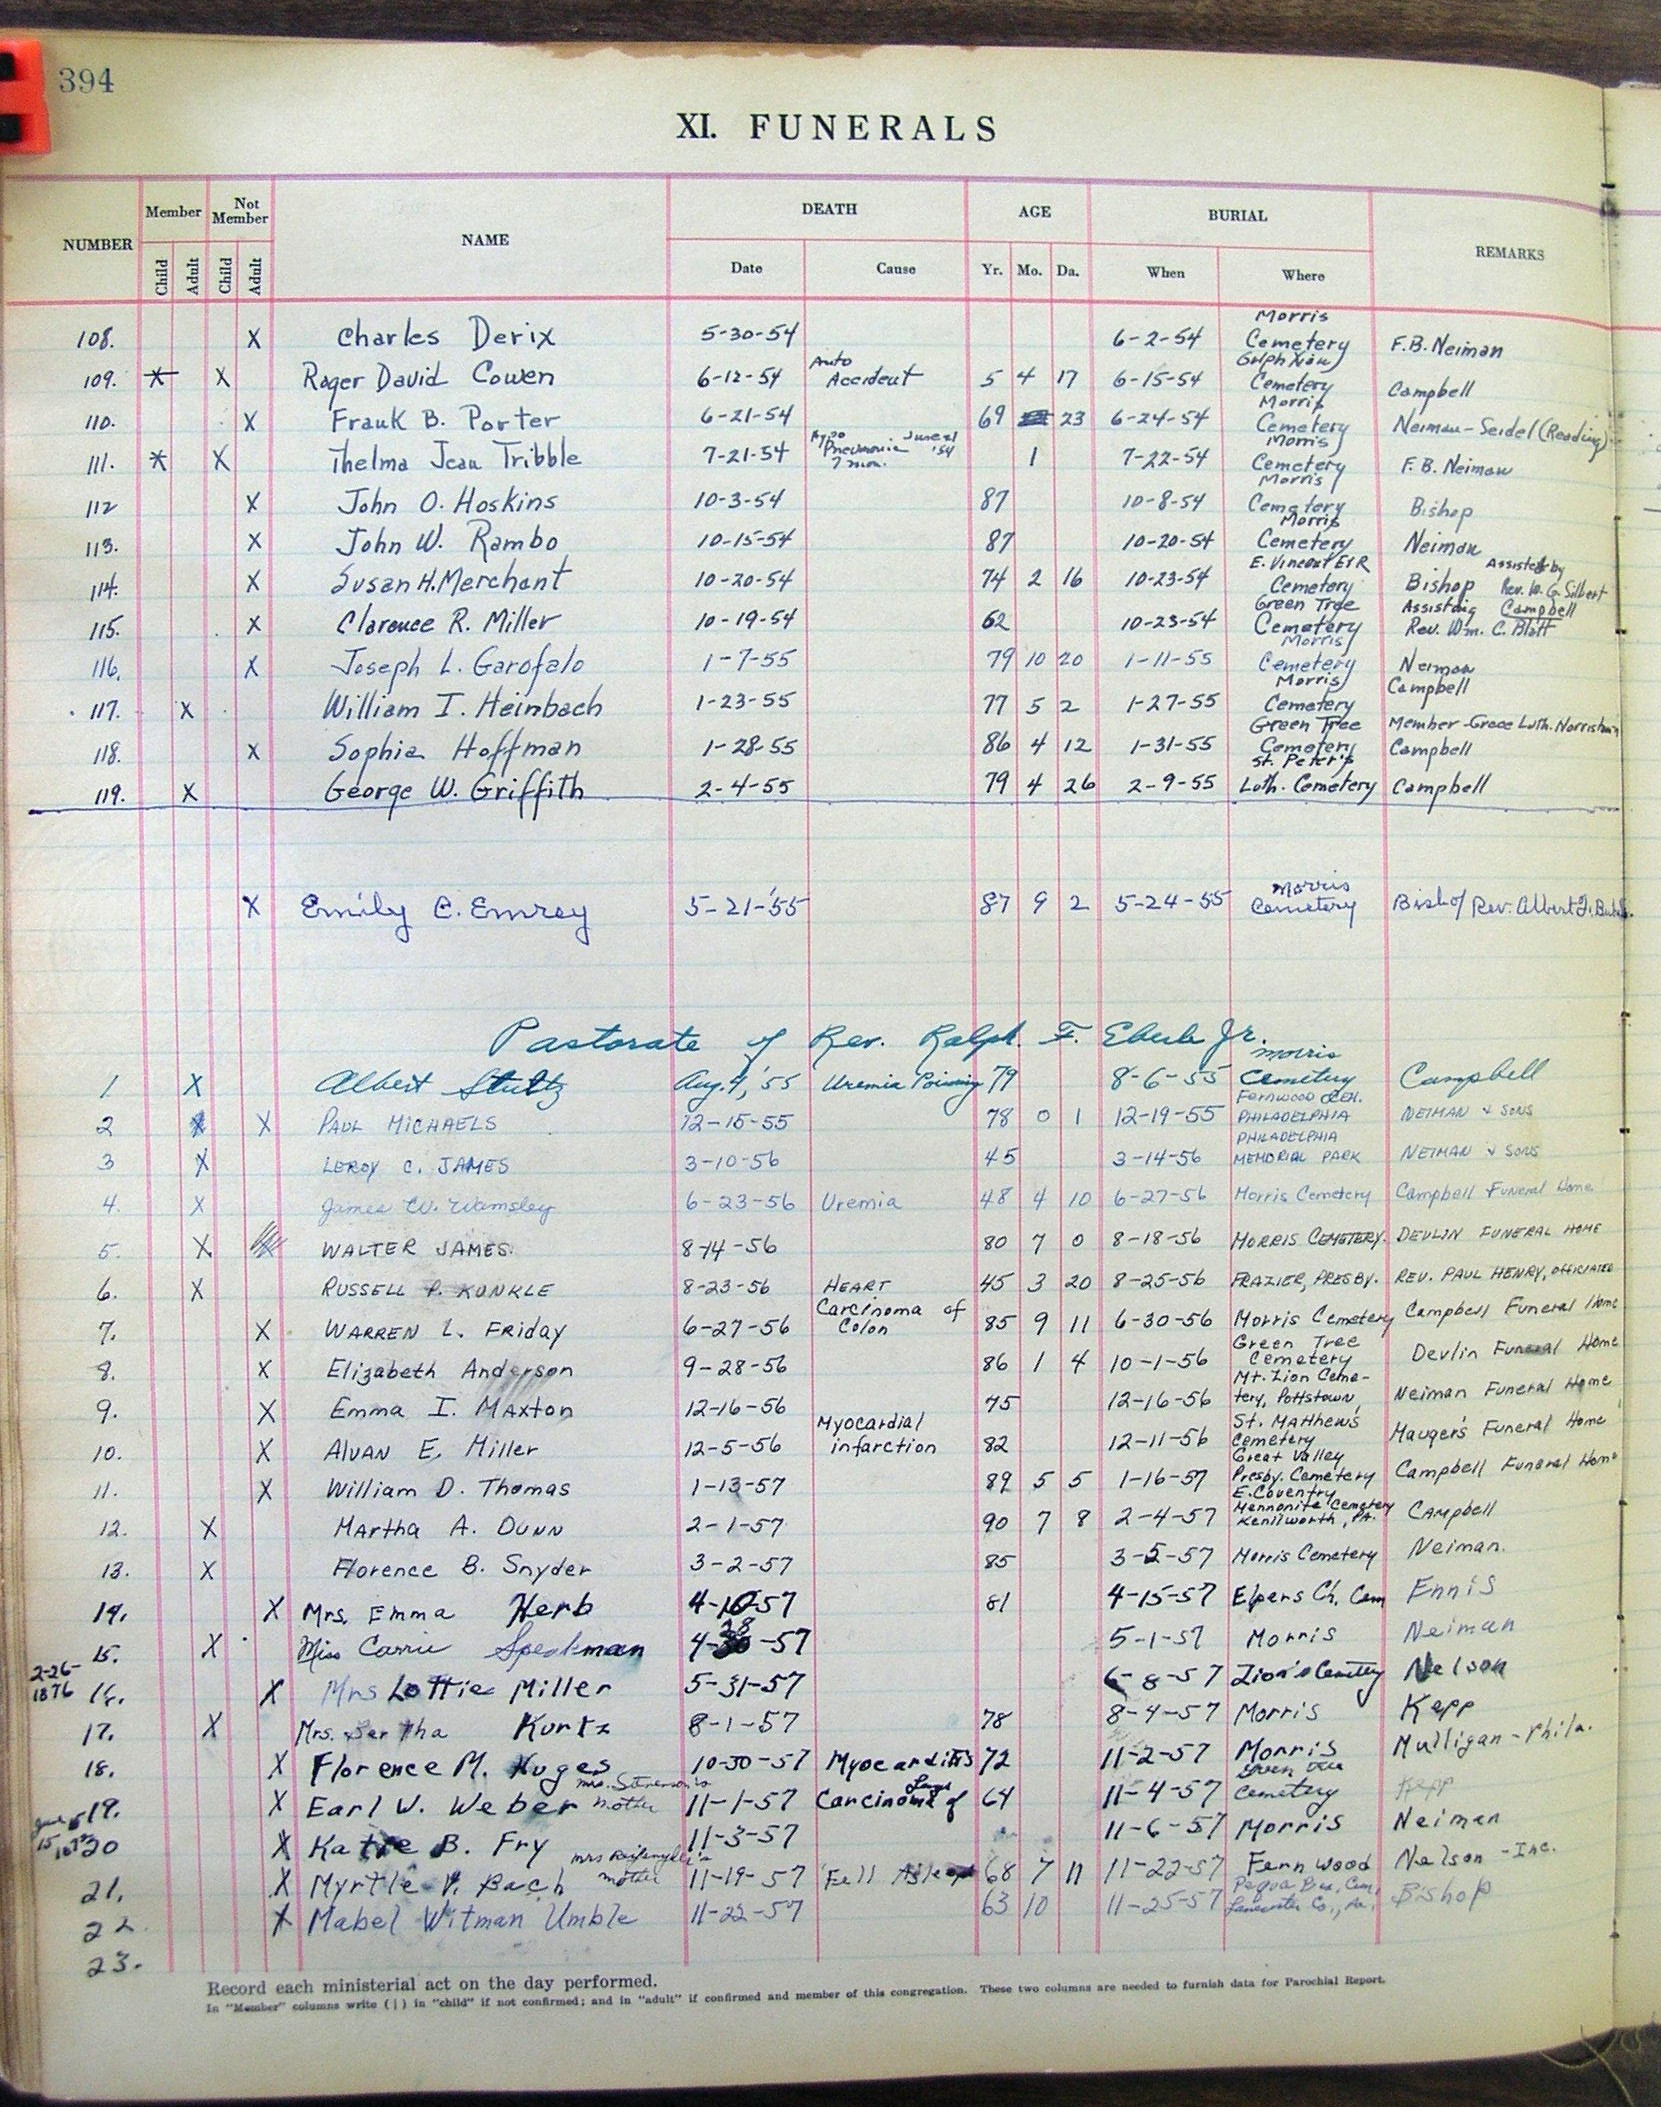 394
XI. FUNERALS
NUMBER Member Not Member NAME DEATH AGE BURIAL REMARKS
Child Adult Child Adult Date Cause Yr. Mo. Da. When Where
108. X Charles Derix 5-30-54 6-2-54 Morris Cemetery F.B. Neiman
109. X X Roger David Cowen 6-12-54 Auto Accident 5 4 17 6-15-54 Gulph Cemetery Campbell
110. X Frank B. Porter 6-21-54 69 23 6-24-54 Morris Cemetery Neiman-Seidel (Reading)
111. X X Thelma Jean Tribble 7-21-54 Pneumonia June 21 '54 1 7-22-54 Morris Cemetery F.B. Neiman
112 X John O. Hoskins 10-3-54 87 10-8-54 Morris Cemetery Bishop
113. X John W. Rambo 10-15-54 87 10-20-54 Morris Cemetery Neiman
114. X Susan H. Merchant 10-20-54 74 2 16 10-23-54 E. Vincent E&R Cemetery Bishop Assisted by Rev. W. G. Silbert
115. X Clarence R. Miller 10-19-54 62 10-23-54 Green Tree Cemetery Assisting Campbell Rev. Wm. C. Blatt
116. X Joseph L. Garofalo 1-7-55 79 10 20 1-11-55 Morris Cemetery Neiman
117. X William I. Heinbach 1-23-55 77 5 2 1-27-55 Morris Cemetery Campbell
118. X Sophia Hoffman 1-28-55 86 4 12 1-31-55 Green Tree Cemetery Member-Grace Luth. Norristown Campbell
119. X George W. Griffith 2-4-55 79 4 26 2-9-55 St. Peter's Luth. Cemetery Campbell
X Emily C. Emrey 5-21-'55 87 9 2 5-24-55 Morris Cemetery Bishop Rev. Albert
Pastorate of Rev. Ralph F. Eberle Jr.
1 X Albert Stultz Aug. 4, '55 Uremia Poising 79 8-6-55 Morris Cemetery Campbell
2 X X PAUL MICHAELS 12-15-55 78 0 1 12-19-55 Fernwood Cem. PHILADELPHIA NEIMAN & SONS
3 X LEROY C. JAMES 3-10-56 45 3-14-56 PHILADELPHIA MEMORIAL PARK NEIMAN & SONS
4. X James W. Wamsley 6-23-56 Uremia 48 4 10 6-27-56 Morris Cemetery Campbell Funeral Home
5. X WALTER JAMES 8-14-56 80 7 0 8-18-56 MORRIS CEMETERY. DEVLIN FUNERAL HOME
6. X RUSSELL P. KUNKLE 8-23-56 HEART 45 3 20 8-25-56 FRAZIER, PRESBY. REV. PAUL HENRY, OFFICIATED
7. X WARREN L. FRiday 6-27-56 Carcinoma of Colon 85 9 11 6-30-56 Morris Cemetery Campbell Funeral Home
8. X Elizabeth Anderson 9-28-56 86 1 4 10-1-56 Green Tree Cemetery Devlin Funeral Home
9. X Emma I. Maxton 12-16-56 75 12-16-56 Mt. Zion Ceme-tery, Pottstown, Neiman Funeral Home
10. X Alvan E. Miller 12-5-56 Myocardial infarction 82 12-11-56 St. Matthew's Cemetery Mauger's Funeral Home
11. X William D. Thomas 1-13-57 89 5 5 1-16-57 Great Valley Presby. Cemetery Campbell Funeral Home
12. X Martha A. Dunn 2-1-57 90 7 8 2-4-57 E. Coventry Mennonite Cemetery Kenilworth, PA. Campbell
13. X Florence B. Snyder 3-2-57 85 3-5-57 Morris Cemetery Neiman.
14. X Mrs. Emma Herb 4-10-57 81 4-15-57 Elpers Ch. Cem Ennis
15. X Miss Carrie Speakman 4-28-57 5-1-57 Morris Neiman
2-26-1876 16. X Mrs Lottie Miller 5-31-57 6-8-57 Zion's Cemetery Nelson
17. X Mrs. Bertha Kurtz 8-1-57 78 8-4-57 Morris Kepp
18. X Florence M. Huges 10-30-57 Myocarditis 72 11-2-57 Morris Mulligan-Phila.
19. X Earl W. Weber 11-1-57 Carcinoma of Lung 64 11-4-57 Green Tree Cemetery Kepp
20 X Katie B. Fry mrs. Stevenson's mother 11-3-57 11-6-57 Morris Neiman
21. X Myrtle V. Bach mother 11-19-57 Fell Asleep 68 7 11 11-22-57 Fernwood Nelson-Inc.
22. X Mabel Witman Umble 11-22-57 63 10 11-25-57 Pequa Cem. Lancaster Co., Pa. Bishop
23.
Record each ministerial act on the day performed.
In "Member" columns write (|) in "child" if not confirmed; and in "adult" if confirmed and member of this congregation. These two columns are needed to furnish data for Parochial Report.